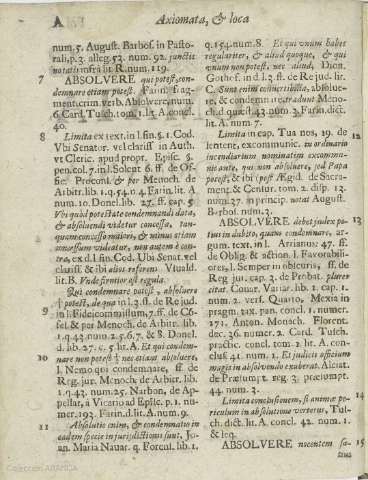 A Axiomata, & loca
num. 5. August. Barbos. in Pasto-
rali, p. 3. alleg. 52. num. 92. punctis
notatis infra lit. R. num. 119.
7 ABSOLVERE qui potest, con-
demnare etiam potest. Farin. frag-
ment. crim. verb. Absolvere, num.
6. Card. Tusch. tom. 1. lit. A. concl.
40.
8 Limita ex text. in l. fin. §. 1. Cod.
Vbi Senator. vel clarissi in Auth.
vt Cleric. apud propr. Episc. §.
pen. col. 7. in l. Solent 6. ff. de Of-
fic. Proconf. & per Menoch. de
Arbitr. lib. 1. q. 54. n. 4. Farin. lit. A
num. 10. Donel. lib. 27. ff. cap. 5
Vbi quòd potestate condemnandi data,
& absoluendi videtur concessa, tan-
quam concesso maiori, & minus etiam
concessum videatur, non autem è con-
tra, ex d. l. fin. Cod. Ubi Senat. vel
clariss. & ibi alios referens Vivald.
lit. B. Vnde firmior est regula.
Qui condemnare potest & absolvere
potest, de qua in l. 3. ff. de Re jud.
9 in l. Fideicommissum, 7. ff. de Cōsf-
sel. & per Menoch. de Arbitr. lib.
1. q. 43. num. 2. 5. 6. 7. & 8. Donel.
d. lib. 27. c. 5. lit. A. Et qui condem-
10 nare non potest & nec etiam absolvere,
l. Nemo qui condemnare, ff. de
Reg. jur. Menoch. de Arbitr. lib.
1. q. 43. num. 25. Narbon. de Ap-
pellat. á Vicario ad Episc. p. 1. nu-
mer. 193. Farin. d. lit. A. num. 9.
11 Absolutio enim, & condemnatio in
eadem specie in jurisdictionis sunt, Jo-
an. Maria Navar. q. Forens. lib. 1.
q. 154. num. 8. Et qui vnum habet
regulariter, & aliud quoque, & qui
vnum non potest, nec aliud, Dion.
Gothof. in d. l. 3. ff. de Re jud. lit.
C. Sunt enim convertibilia, absolue-
re, & condemnare: tradunt Menoch.
d. quæst. 43. num. 3. Farin. dict.
lit. A. num. 7.
Limita in cap. Tua nos, 19. de 12
sentent. excommunic. in ordinario
incendiarium nominatim excommu-
nicante, qui non absolvere, sed Papa
potest; & ibi post Ægid. de Sacra-
ment. & Centur. tom. 2. disp. 13.
num. 37. in princip. notat August.
Barbos. num. 3.
ABSOLVERE debet judex po- 13
tius in dubio, quam condemnare, ar-
gum. text. in l. Arrianus 47. ff.
de Oblig. & action. l. Favorabili-
ores, l. Semper in obscuris, ff. de
Reg. jur. cap. 3. de Probat. plures
citat. Couar. Variar. lib. 1. cap. 1.
num. 2. vers. Quarto. Mexia in
pragm. tax. pan. concl. 1. numer.
271. Anton. Monach. Florent.
dec. 36. numer. 2. Card. Tusch.
practic. concl. tom. 1. lit. A. con-
clus. 41. num. 1. Et judicis officium
magis in absolvendo exuberat. Alciat.
de Præsumpt. reg. 3. præsumpt.
44. num. 3.
Limita conclusionem, si animæ pe- 14
riculum in absolutione verteretur, Tus-
ch. dict. lit. A. concl. 42. num. 1.
& seq.
ABSOLVERE nocentem sa- 15
tius